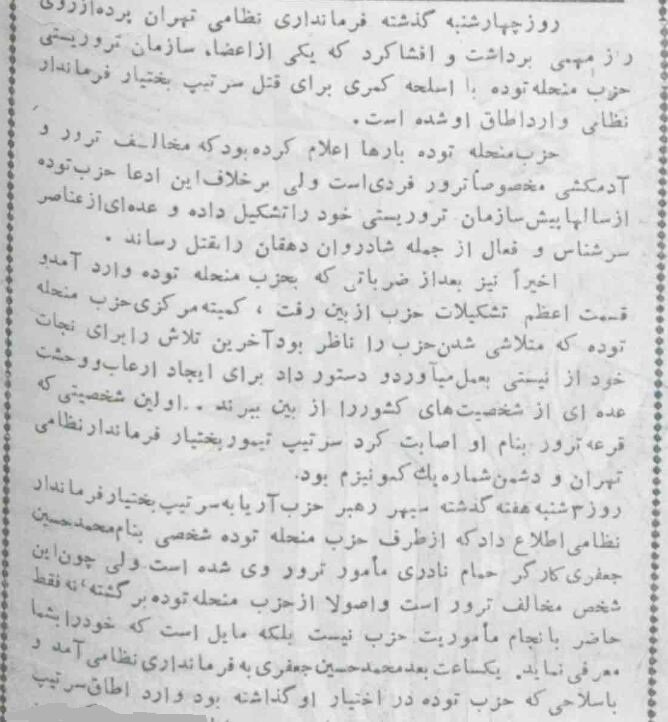 روز چهارشنبه گذشته فرمانداری نظامی تهران پرده از روی
راز مهمی برداشت و افشا کرد که یکی از اعضاء سازمان تروریستی
حزب منحله توده با اسلحه کمری برای قتل سرتیپ بختیار فرماندار
نظامی وارد اطاق او شده است.
حزب منحله توده بارها اعلام کرده بود که مخالف ترور و
آدمکشی مخصوصاً ترور فردی است ولی برخلاف این ادعا حزب توده
از سالها پیش سازمان تروریستی خود را تشکیل داده و عده‌ای از عناصر
سرشناس و فعال از جمله شادروان دهقان را بقتل رساند .
اخیراً نیز بعد از ضرباتی که بحزب منحله توده وارد آمد و
قسمت اعظم تشکیلات حزب از بین رفت ، کمیته مرکزی حزب منحله
توده که متلاشی شدن حزب را ناظر بود آخرین تلاش را برای نجات
خود از نیستی بعمل میآورد و دستور داد برای ایجاد ارعاب و وحشت
عده ای از شخصیت‌های کشور را از بین ببرند . . اولین شخصیتی که
قرعه ترور بنام او اصابت کرد سرتیپ تیمور بختیار فرماندار نظامی
تهران و دشمن شماره یك کمونیزم بود.
روز ۳ شنبه هفته گذشته سپهر رهبر حزب آریا به سرتیپ بختیار فرماندار
نظامی اطلاع داد که از طرف حزب منحله توده شخصی بنام محمد حسین
جعفری کارگر حمام نادری مأمور ترور وی شده است ولی چون این
شخص مخالف ترور است و اصولا از حزب منحله توده برگشته، نه فقط
حاضر بانجام مأموریت حزب نیست بلکه مایل است که خود را بشما
معرفی نماید. یکساعت بعد محمد حسین جعفری به فرمانداری نظامی آمد و
با سلاحی که حزب توده در اختیار او گذاشته بود وارد اطاق سرتیپ